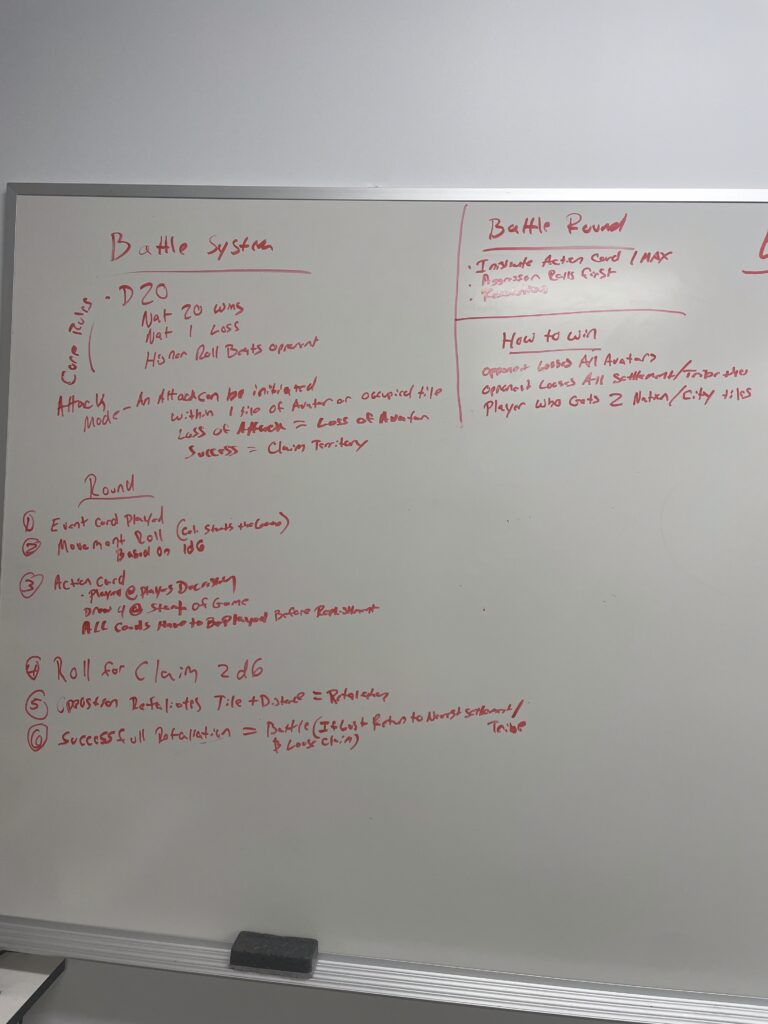 Battle System
Core Rules
• D20
Nat 20 wins
Nat 1 Loss
Higher Roll Beats opponent
Attack Mode - An Attack can be initiated
within 1 tile of Avatar or occupied tile
Loss of Attack = Loss of Avatar
Success = Claim Territory
Round
① Event Card Played
② Movement Roll (Col. Starts the Game)
Based on 1d6
③ Action Card
• Played @ Players
Draw 4 @ Start of Game
ALL Cards Have to Be Played Before Replishment
④ Roll for Claim 2d6
⑤ Retaliates Tile + = Retaliation
⑥ Successfull Retaliation = Battle (If Lost Return to Nearest Settlement/
Tribe
$ Loose Claim)
Battle Round
• Action Card 1 MAX
• Rolls First
•
How to win
Opponent Looses All Avatars
Opponent Looses All Settlement/Tribe tiles
Player who Gets 2 Nation/City tiles